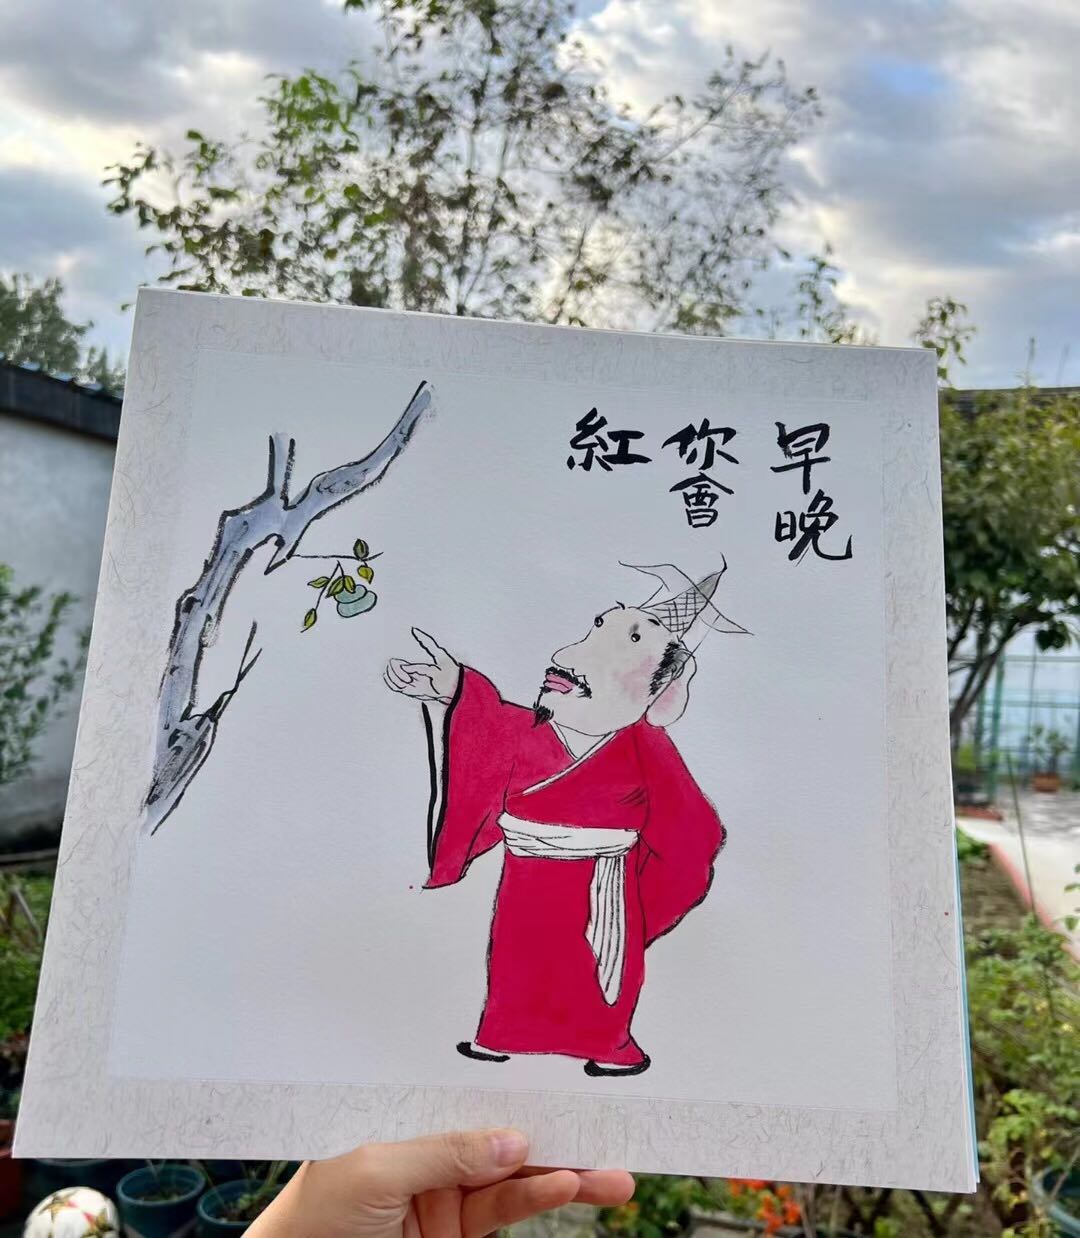 早晚
你會
紅